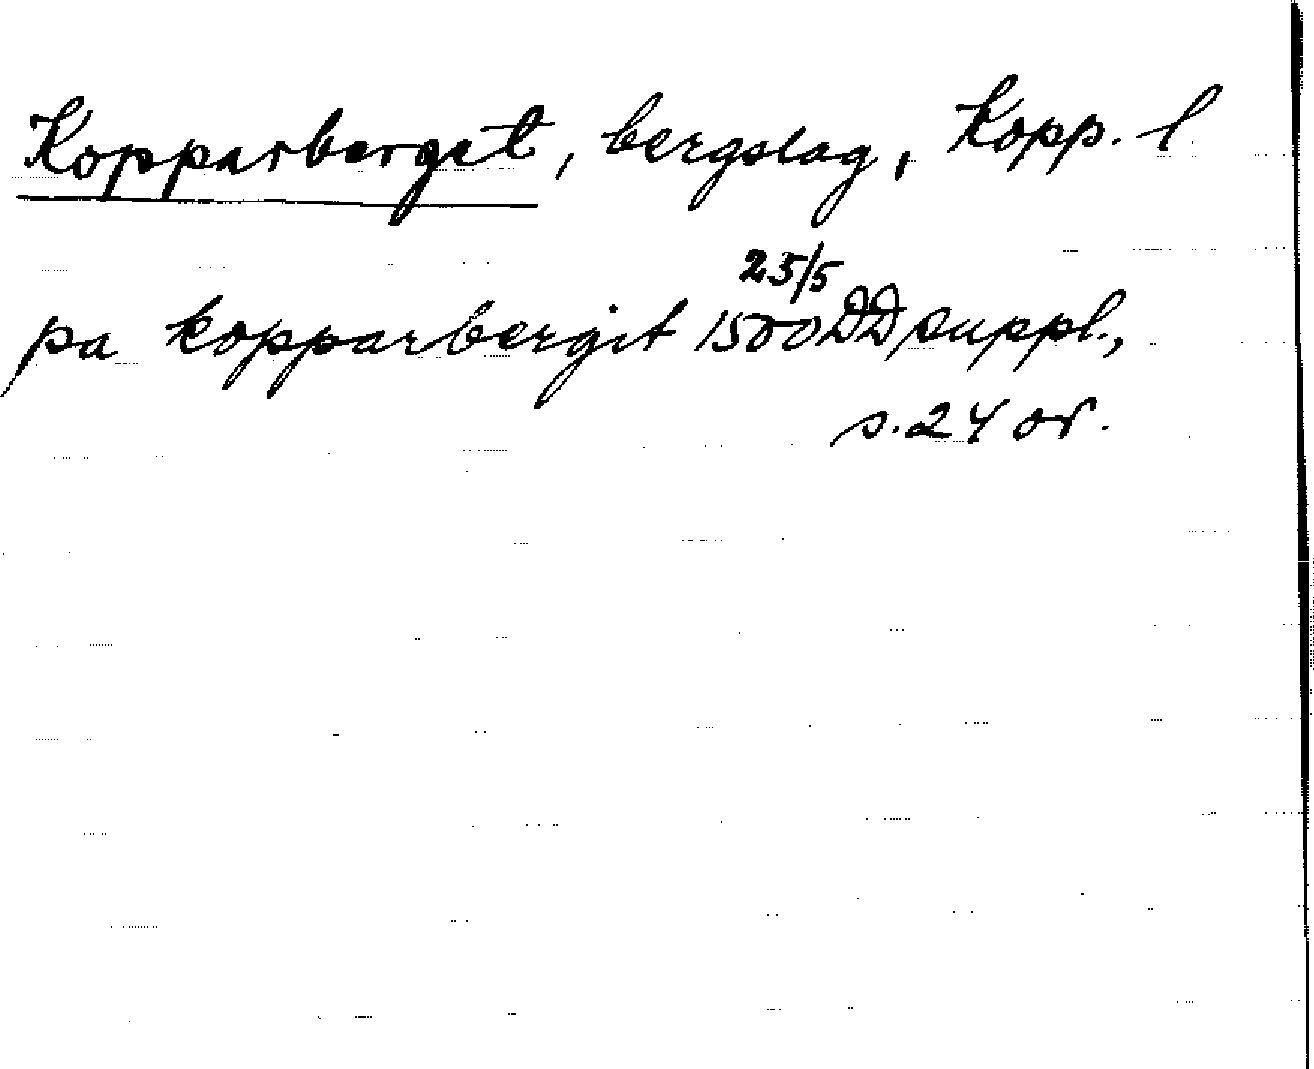 Kopparberget, bergslag, Kopp. l
pa kopparbergit 25/5 1500 DD suppl.,
s. 24 or.